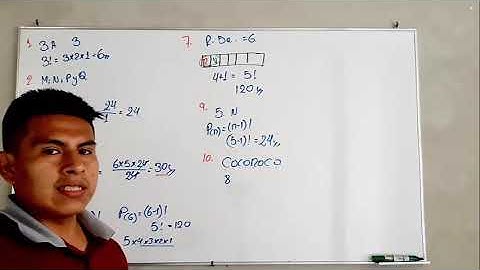 1. 3A 3
3! = 3x2x1 = 6
2. M, N, P y Q
24
1
= 24
6x5x24
24
= 30
P(6) = (6-1)!
5! = 120
5x4x3x2x1
7.
= 6
4+1 = 5!
120
9. 5 N
P(n) = (n-1)!
(5-1)! = 24
10. COCOROCO
8